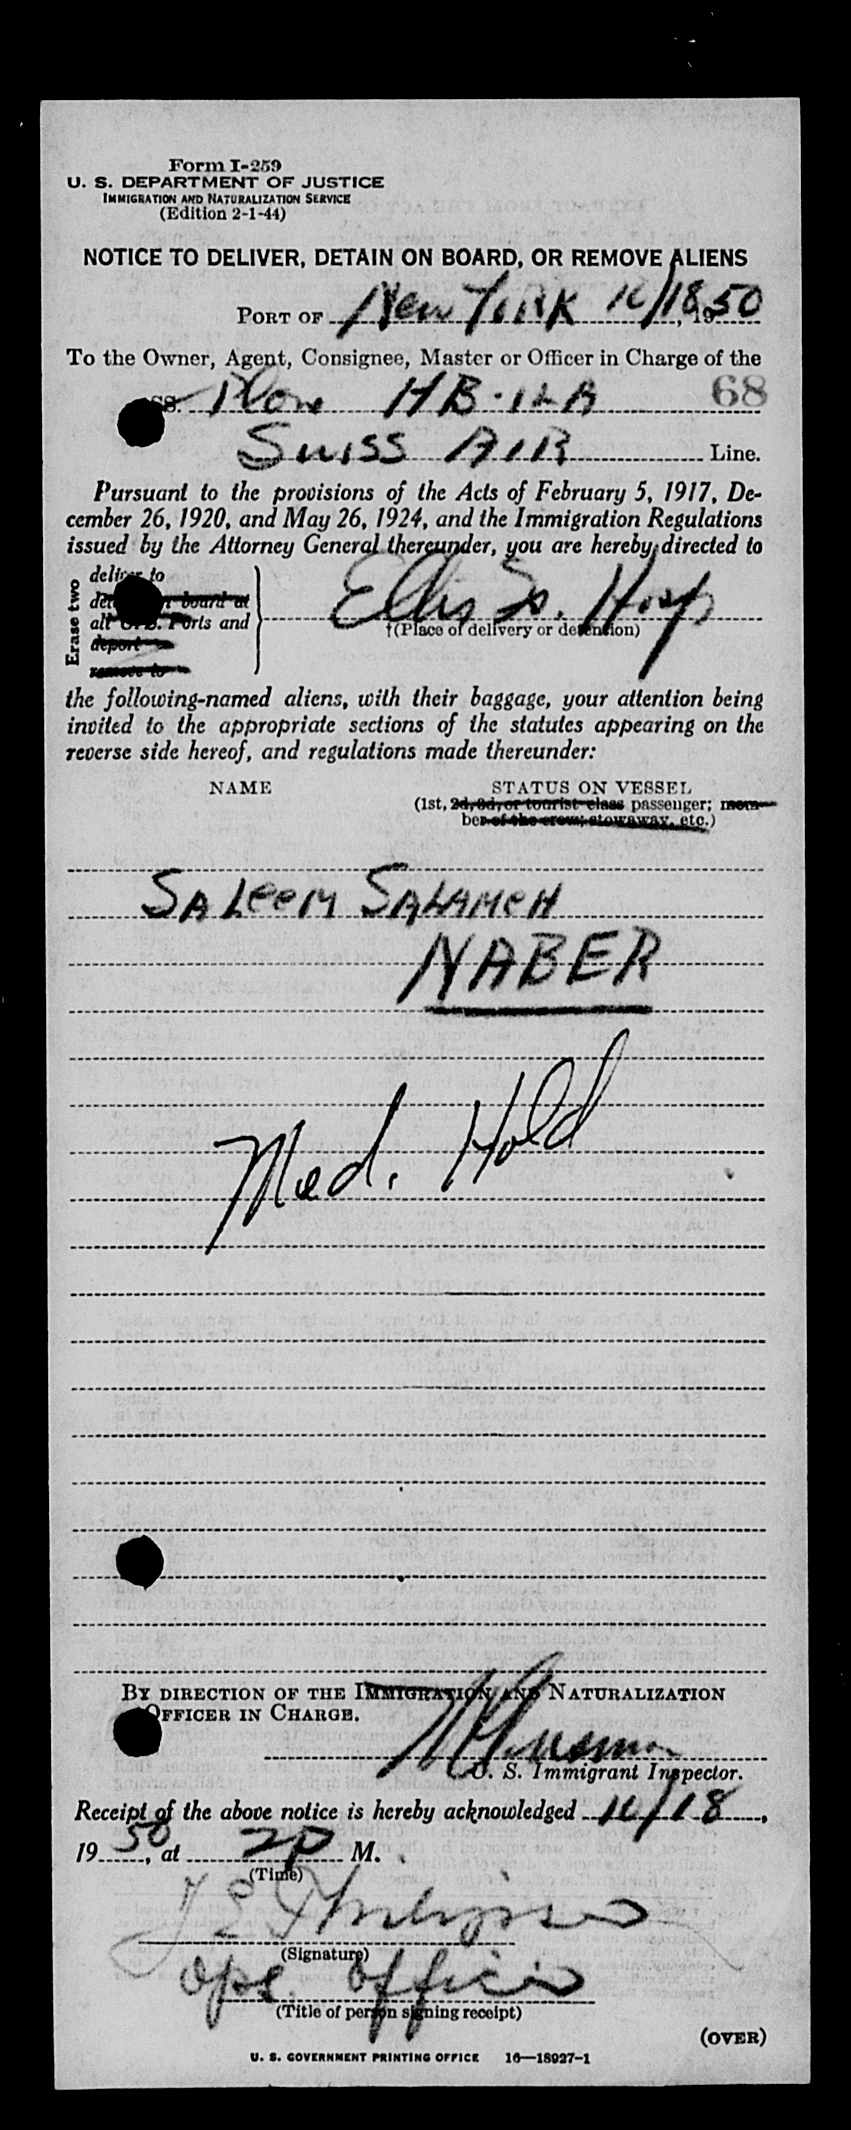 Form I-259
U. S. DEPARTMENT OF JUSTICE
IMMIGRATION AND NATURALIZATION SERVICE
(Edition 2-1-44)
NOTICE TO DELIVER, DETAIN ON BOARD, OR REMOVE ALIENS
PORT OF New YORK 10/18, 1950
To the Owner, Agent, Consignee, Master or Officer in Charge of the
SS. Plane HB-ILA 68
Swiss AIR Line.
Pursuant to the provisions of the Acts of February 5, 1917, De-
cember 26, 1920, and May 26, 1924, and the Immigration Regulations
issued by the Attorney General thereunder, you are hereby directed to
Erase two
deliver to
detain on board at
all U. S. Ports and
deport
remove to
Ellis Is. Hosp
†(Place of delivery or detention)
the following-named aliens, with their baggage, your attention being
invited to the appropriate sections of the statutes appearing on the
reverse side hereof, and regulations made thereunder:
NAME STATUS ON VESSEL
(1st, 2d, 3d, or tourist class passenger; mem-
ber of the crew; stowaway, etc.)
SALeeM SALAMeH
NABER
Med. Hold
BY DIRECTION OF THE IMMIGRATION AND NATURALIZATION
OFFICER IN CHARGE.
U. S. Immigrant Inspector.
Receipt of the above notice is hereby acknowledged 10/18,
1950, at 2P M.
(Time)
(Signature)
Ops. Officer
(Title of person signing receipt)
(OVER)
U. S. GOVERNMENT PRINTING OFFICE 16—18927-1